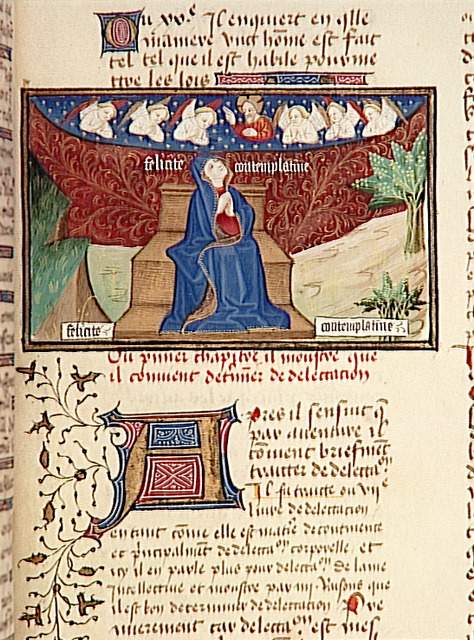 Ou xv.e Il enquiert en q̃lle
maniere vng hõme est fait
tel tel que il est habile pour me
ttre les lois
felicite contemplatiue
felicite contemplatiue
Ou p̃mier chapitre il monstre que
il conuient determ̃er de delectacion
Apres il sensuit q̃
par auenture il
conuient briefmẽt
traitter de delectaõn
Il fu traitte ou vije
liure de delectacion
en tant cõme elle est matẽ de continence
et p̃ncipalment de delectaõn corporelle et
icy il en parle plus pour delectaõn de lame
Intellectiue et monstre par iiij. Raisons que
il est bon determiner de delectacion Pre
mierement car delectaõn est mes